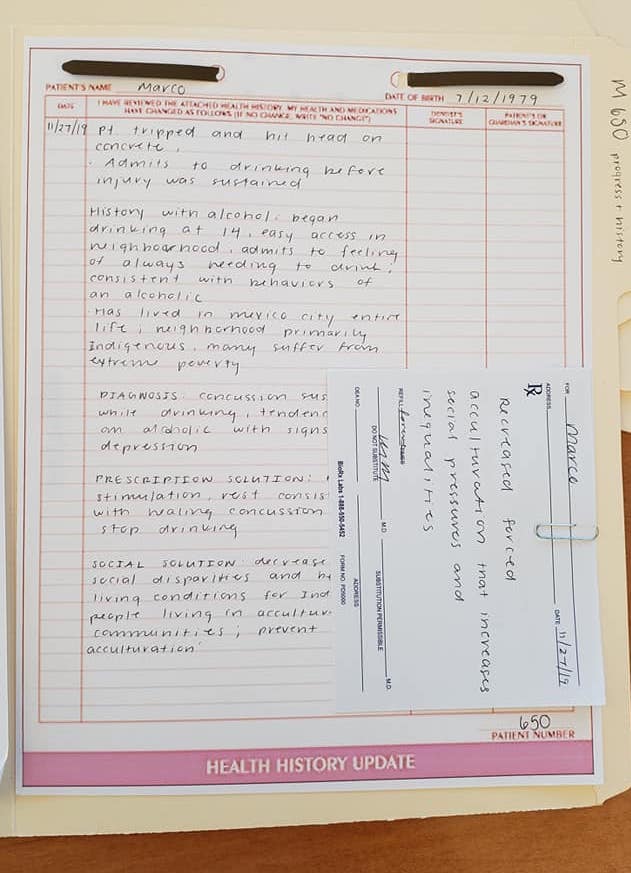 PATIENT'S NAME Marco
DATE OF BIRTH 7/12/1979
DATE
I HAVE REVIEWED THE ATTACHED HEALTH HISTORY. MY HEALTH AND MEDICATIONS
HAVE CHANGED AS FOLLOWS (IF NO CHANGE, WRITE "NO CHANGE")
DENTIST'S
SIGNATURE
PATIENT'S OR
GUARDIAN'S SIGNATURE
11/27/19 Pt. tripped and hit head on
concrete.
· Admits to drinking before
injury was sustained
History with alcohol: began
drinking at 14, easy access in
neighborhood, admits to feeling
of always needing to drink;
consistent with behaviors of
an alcoholic
· Has lived in mexico city entire
life; neighborhood primarily
Indigenous, many suffer from
extreme poverty
DIAGNOSIS: concussion sus
while drinking, tendenc
an alcoholic with signs
depression
PRESCRIPTION SOLUTION:
stimulation, rest consis
with healing concussion
stop drinking
SOCIAL SOLUTION: decrease
social disparities and
living conditions for Ind
people living in accultur
communities; prevent
acculturation
650
PATIENT NUMBER
HEALTH HISTORY UPDATE
FOR Marco
ADDRESS
DATE 11/27/19
Rx
Decreased forced
acculturation that increases
social pressures and
inequalities
REFILL
M.D.
DO NOT SUBSTITUTE
M.D.
SUBSTITUTION PERMISSIBLE
DEA NO.
ADDRESS
BioRx Labs 1-888-550-5452
FORM NO. PD5000
M 650 progress + history